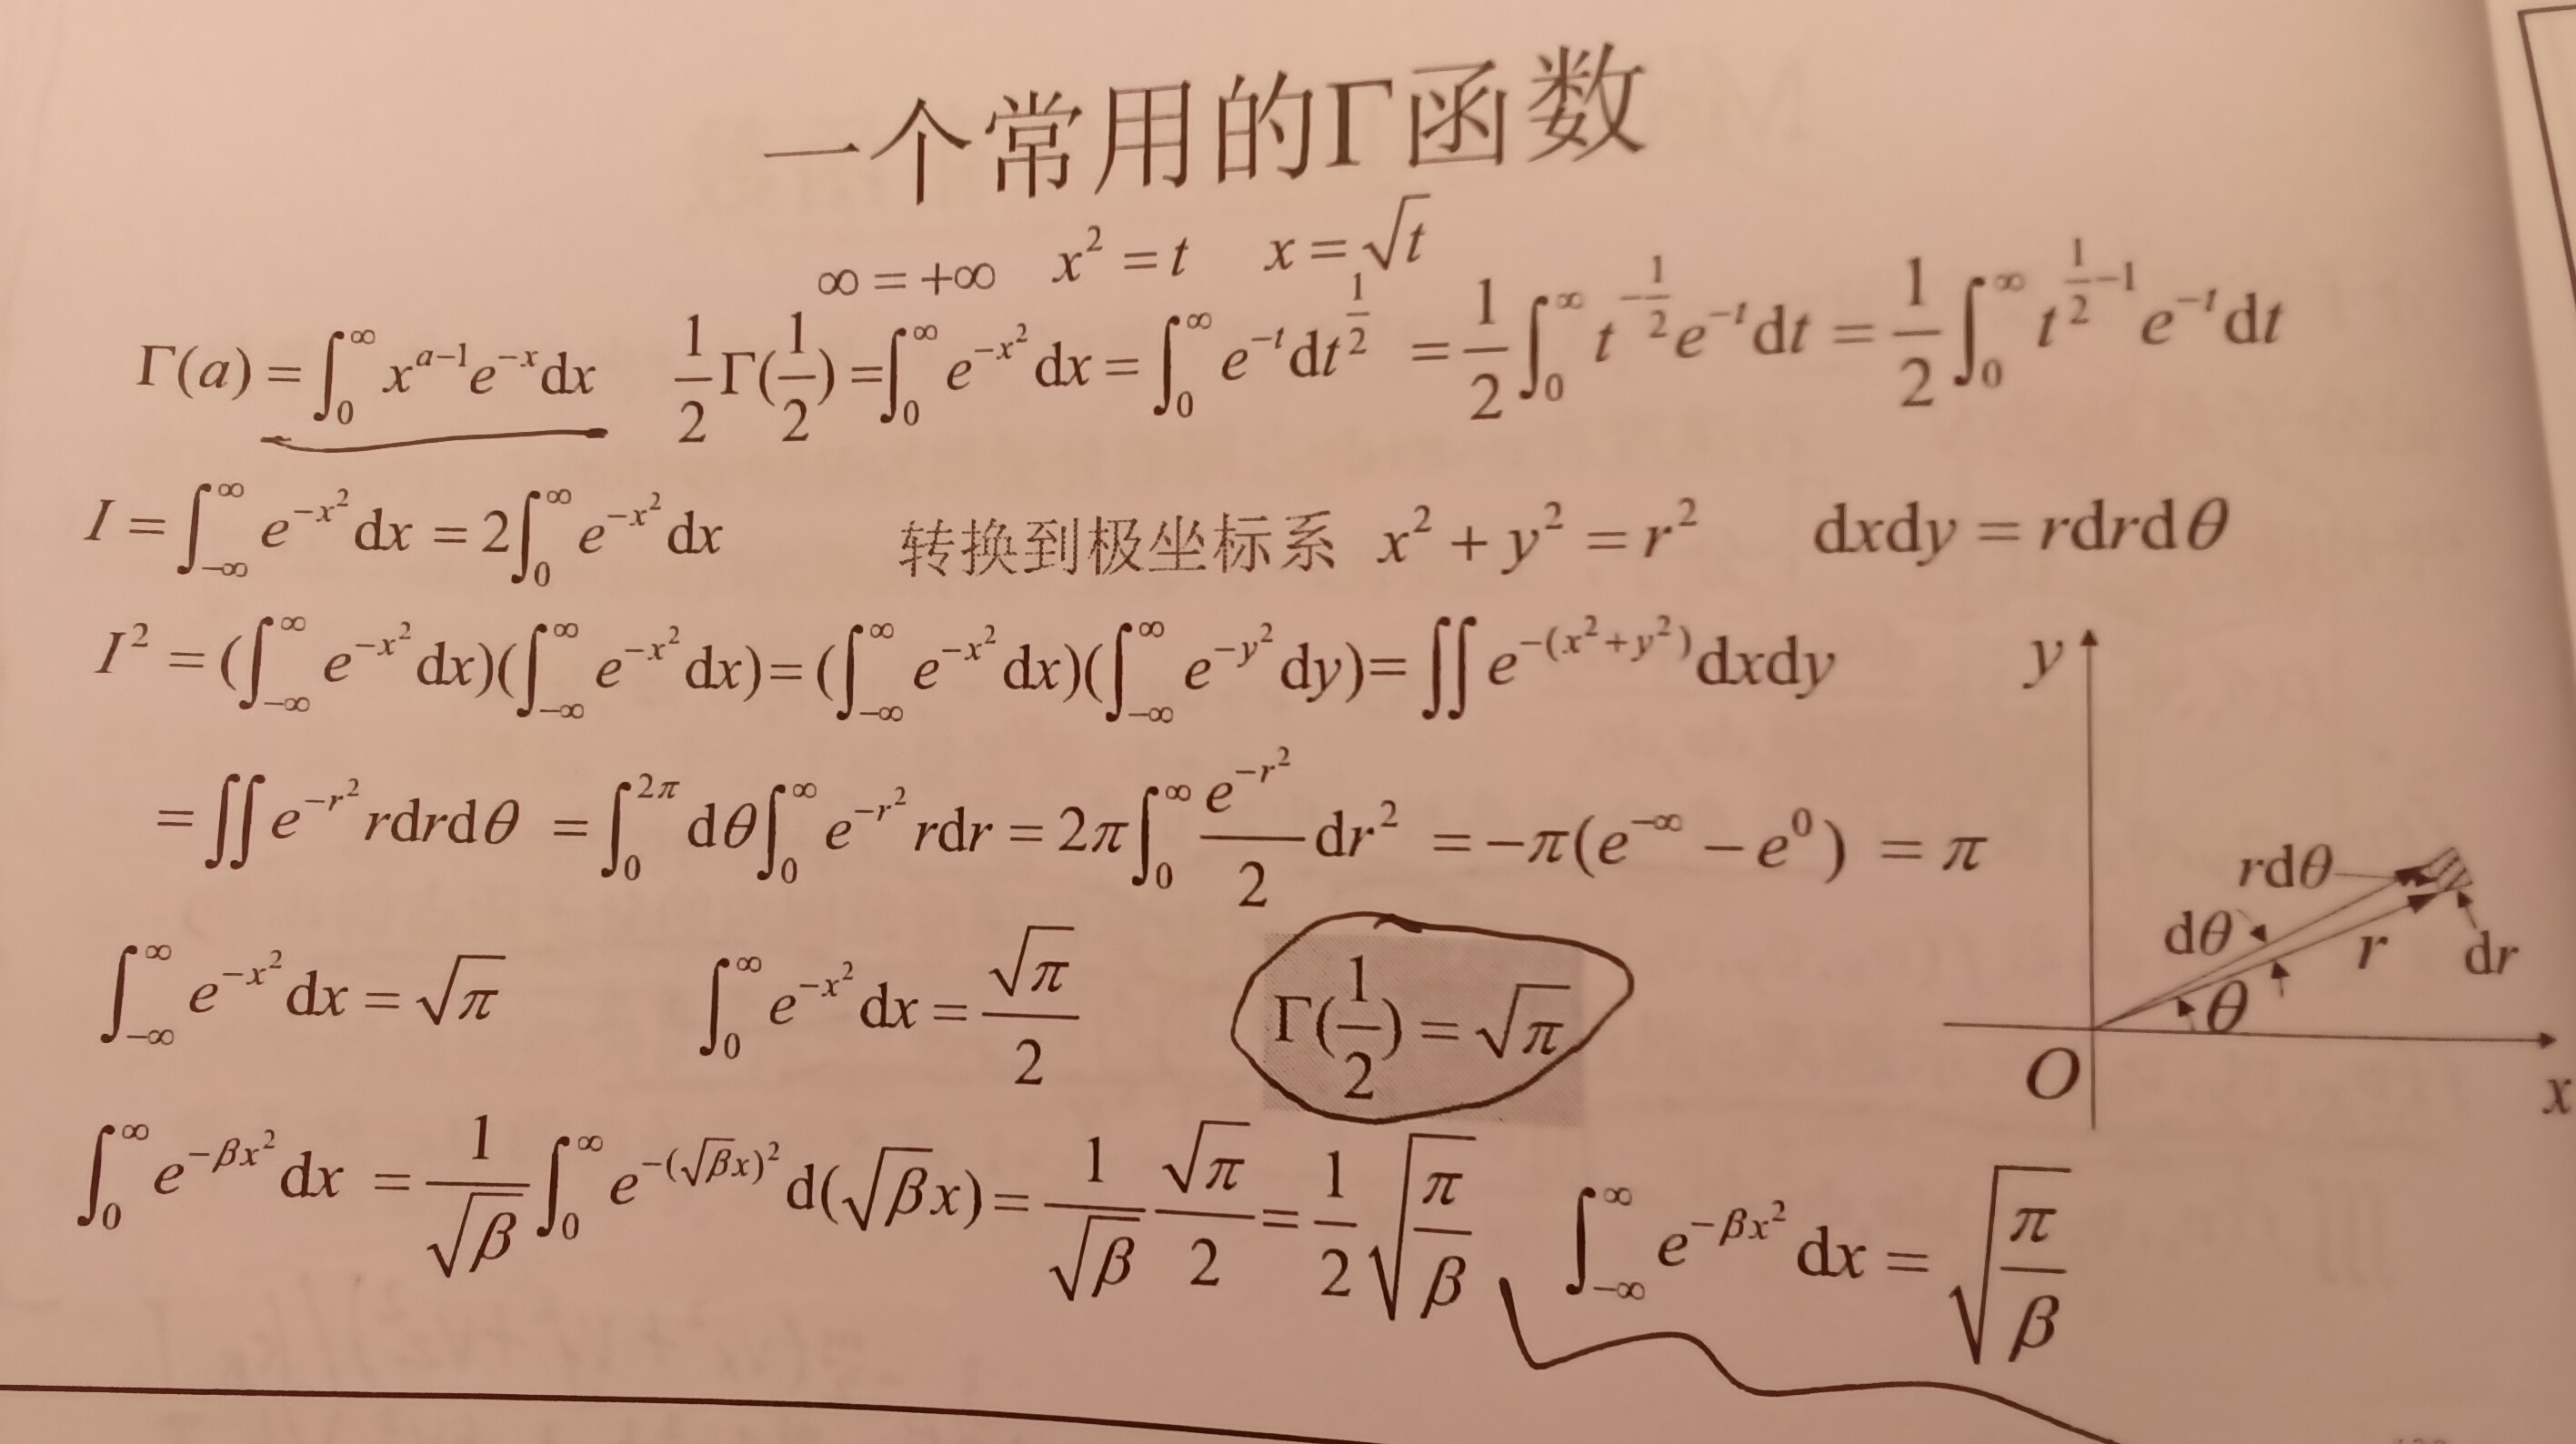 一个常用的Γ函数
∞ = +∞ x² = t x = √t
Γ(a) = ∫₀^∞ x^{a−1}e^{−x}dx ½Γ(½) = ∫₀^∞ e^{−x²}dx = ∫₀^∞ e^{−t}dt^{½} = ½∫₀^∞ t^{−½}e^{−t}dt = ½∫₀^∞ t^{½−1}e^{−t}dt
I = ∫_{−∞}^∞ e^{−x²}dx = 2∫₀^∞ e^{−x²}dx 转换到极坐标系 x² + y² = r² dxdy = rdrdθ
I² = (∫_{−∞}^∞ e^{−x²}dx)(∫_{−∞}^∞ e^{−x²}dx) = (∫_{−∞}^∞ e^{−x²}dx)(∫_{−∞}^∞ e^{−y²}dy) = ∬e^{−(x²+y²)}dxdy
= ∬e^{−r²}rdrdθ = ∫₀^{2π}dθ∫₀^∞ e^{−r²}rdr = 2π∫₀^∞ \frac{e^{−r²}}{2}dr² = −π(e^{−∞} − e⁰) = π
∫_{−∞}^∞ e^{−x²}dx = √π ∫₀^∞ e^{−x²}dx = \frac{√π}{2} Γ(½) = √π
∫₀^∞ e^{−βx²}dx = \frac{1}{√β}∫₀^∞ e^{−(√βx)²}d(√βx) = \frac{1}{√β}\frac{√π}{2} = ½\sqrt{\frac{π}{β}} ∫_{−∞}^∞ e^{−βx²}dx = \sqrt{\frac{π}{β}}
y
rdθ
dθ
r
dr
θ
O
x